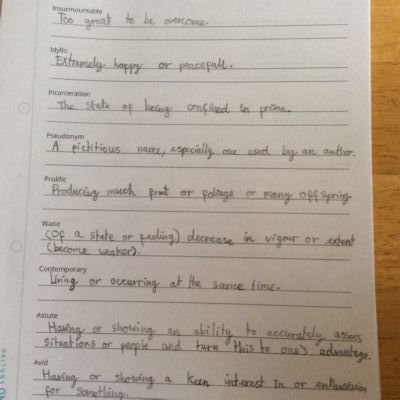 Insurmountable
Too great to be overcome.
Idyllic
Extremely happy or peacefull.
Incarceration
The state of being confined in prison.
Pseudonym
A fictitious name, especially one used by an author.
Prolific
Producing much fruit or foliage or many offspring.
Wane
(Of a state or feeling) decrease in vigour or extent
(become weaker).
Contemporary
Living or occurring at the same time.
Astute
Having or showing an ability to accurately assess
situations or people and turn this to one's advantage.
Avid
Having or showing a keen interest in or enthusiasm
for something.
ENGLISH